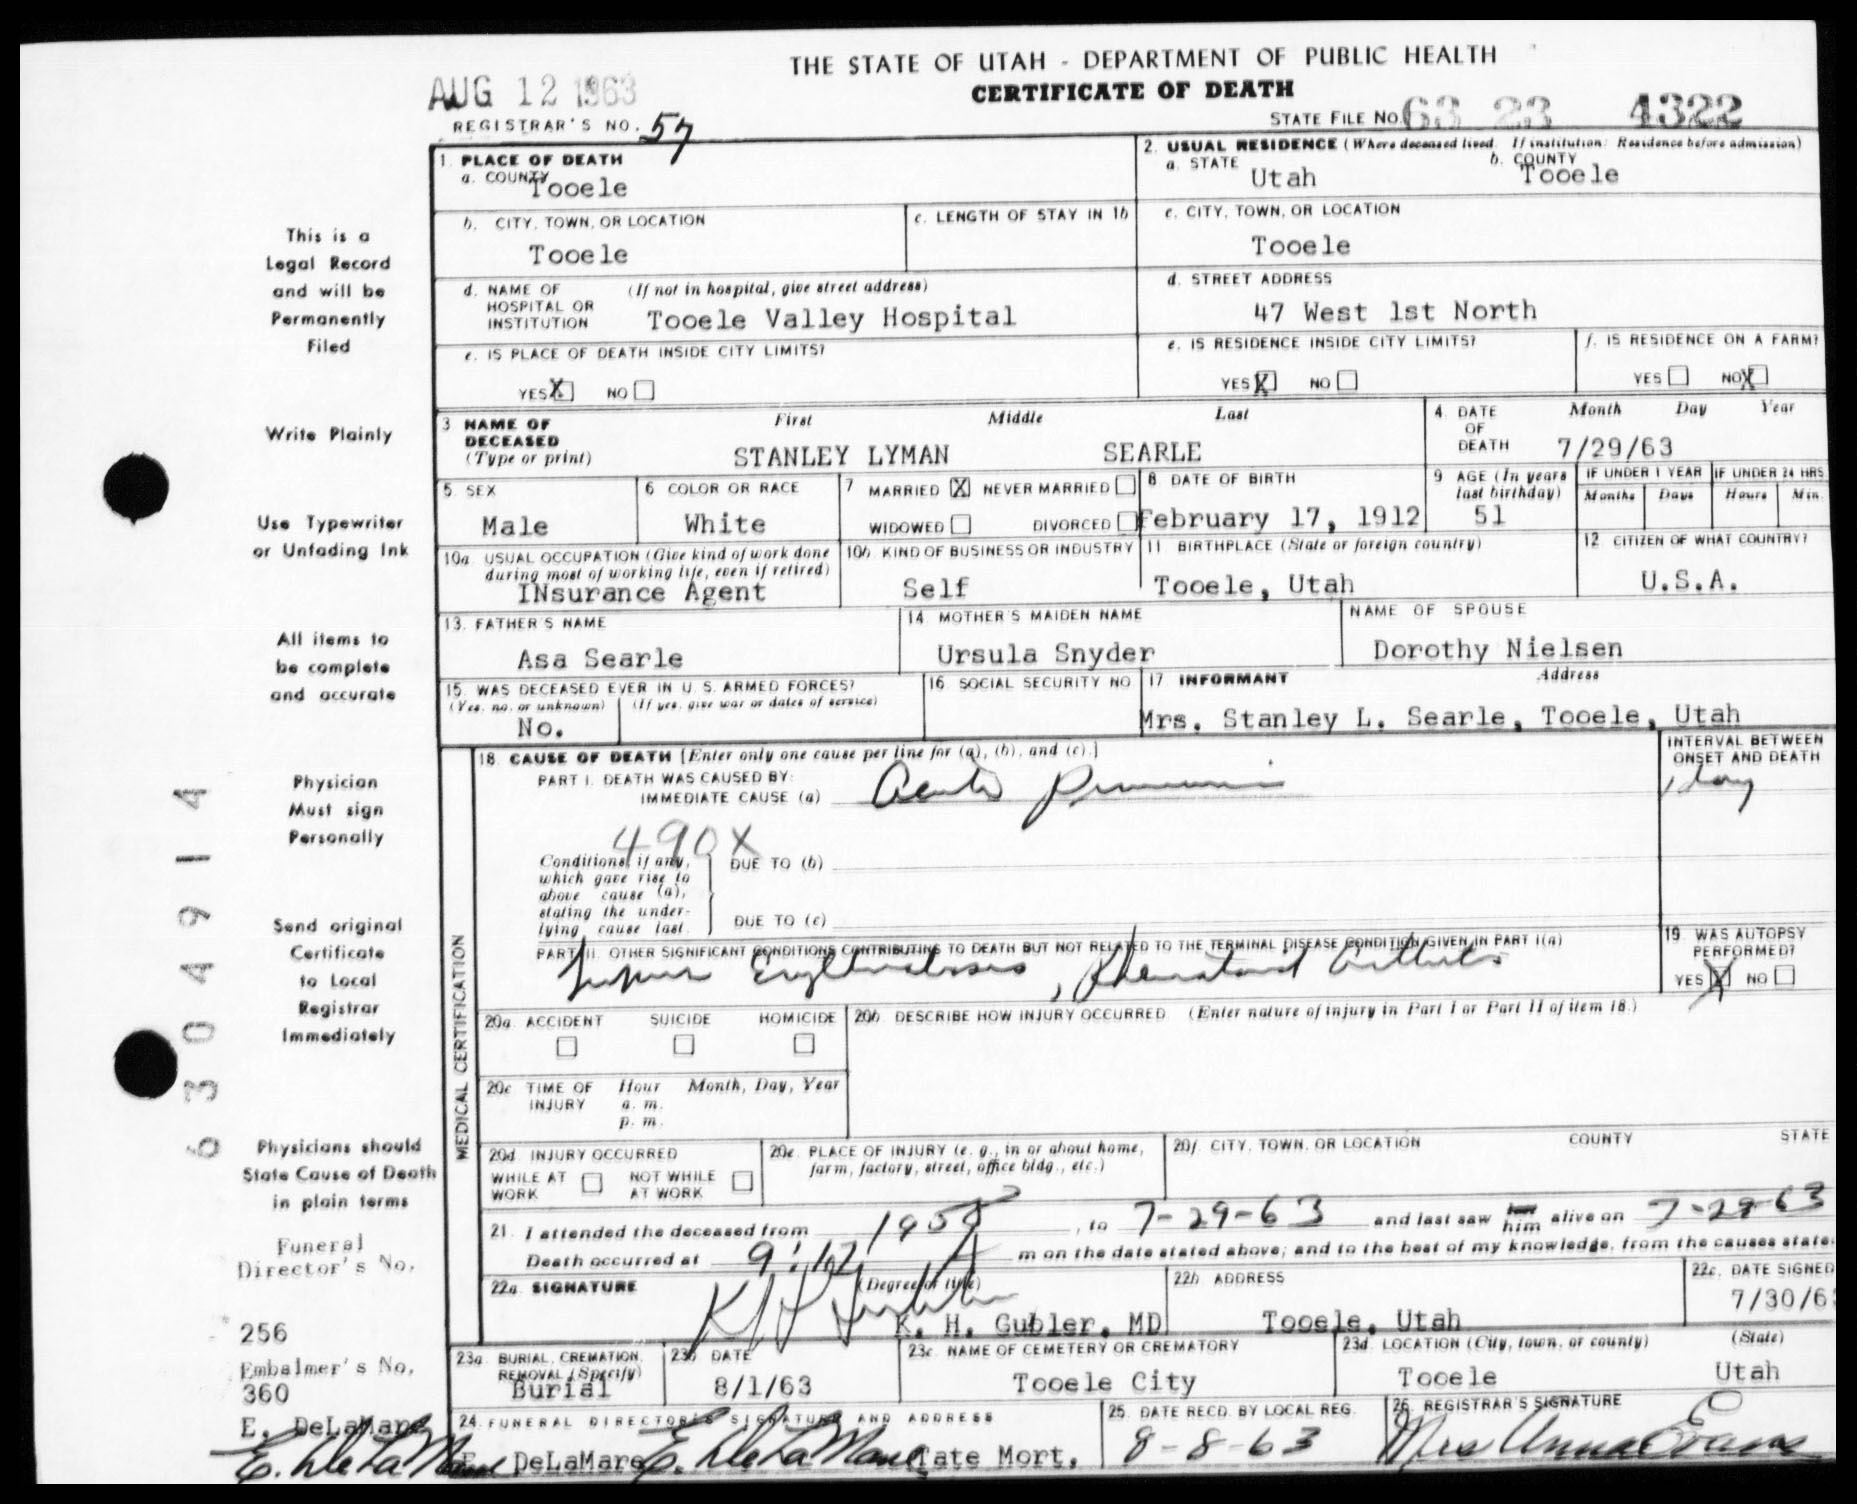 THE STATE OF UTAH - DEPARTMENT OF PUBLIC HEALTH
AUG 12 1963
CERTIFICATE OF DEATH
REGISTRAR'S NO. 57
STATE FILE NO. 63 23 4322
1. PLACE OF DEATH
a. COUNTY
Tooele
2. USUAL RESIDENCE (Where deceased lived. If institution: Residence before admission)
a. STATE Utah
b. COUNTY Tooele
b. CITY, TOWN, OR LOCATION
Tooele
c. LENGTH OF STAY IN 1b
c. CITY, TOWN, OR LOCATION
Tooele
d. NAME OF HOSPITAL OR INSTITUTION (If not in hospital, give street address)
Tooele Valley Hospital
d. STREET ADDRESS
47 West 1st North
e. IS PLACE OF DEATH INSIDE CITY LIMITS?
YES X NO
e. IS RESIDENCE INSIDE CITY LIMITS?
YES X NO
f. IS RESIDENCE ON A FARM?
YES NO X
3 NAME OF DECEASED (Type or print)
First Middle Last
STANLEY LYMAN SEARLE
4. DATE OF DEATH Month Day Year
7/29/63
5. SEX
Male
6 COLOR OR RACE
White
7 MARRIED X NEVER MARRIED
WIDOWED DIVORCED
8 DATE OF BIRTH
February 17, 1912
9 AGE (In years last birthday)
51
IF UNDER 1 YEAR
Months Days
IF UNDER 24 HRS.
Hours Min.
10a. USUAL OCCUPATION (Give kind of work done during most of working life, even if retired)
INsurance Agent
10b. KIND OF BUSINESS OR INDUSTRY
Self
11 BIRTHPLACE (State or foreign country)
Tooele, Utah
12 CITIZEN OF WHAT COUNTRY?
U.S.A.
13. FATHER'S NAME
Asa Searle
14 MOTHER'S MAIDEN NAME
Ursula Snyder
NAME OF SPOUSE
Dorothy Nielsen
15. WAS DECEASED EVER IN U. S. ARMED FORCES?
(Yes, no, or unknown) (If yes, give war or dates of service)
No.
16 SOCIAL SECURITY NO
17 INFORMANT Address
Mrs. Stanley L. Searle, Tooele, Utah
18. CAUSE OF DEATH [Enter only one cause per line for (a), (b), and (c).]
INTERVAL BETWEEN ONSET AND DEATH
PART I. DEATH WAS CAUSED BY:
IMMEDIATE CAUSE (a) Acute Pneumonia
1 day
490X
Conditions, if any, which gave rise to above cause (a), stating the underlying cause last.
DUE TO (b)
DUE TO (c)
PART II. OTHER SIGNIFICANT CONDITIONS CONTRIBUTING TO DEATH BUT NOT RELATED TO THE TERMINAL DISEASE CONDITION GIVEN IN PART I(a)
Lupus Erythematosis, Rheumatoid Arthritis
19. WAS AUTOPSY PERFORMED?
YES X NO
MEDICAL CERTIFICATION
20a. ACCIDENT SUICIDE HOMICIDE
20b. DESCRIBE HOW INJURY OCCURRED (Enter nature of injury in Part I or Part II of item 18.)
20c TIME OF INJURY Hour Month, Day, Year
a. m.
p. m.
20d. INJURY OCCURRED
WHILE AT WORK NOT WHILE AT WORK
20e. PLACE OF INJURY (e. g., in or about home, farm, factory, street, office bldg., etc.)
20f. CITY, TOWN, OR LOCATION COUNTY STATE
21. I attended the deceased from 1958, to 7-29-63 and last saw him alive on 7-29-63
Death occurred at A m on the date stated above; and to the best of my knowledge, from the causes state
22a. SIGNATURE (Degree or title)
K H Gubler
K. H. Gubler, MD
22b ADDRESS
Tooele, Utah
22c. DATE SIGNED
7/30/63
23a. BURIAL, CREMATION, REMOVAL (Specify)
Burial
23b DATE
8/1/63
23c. NAME OF CEMETERY OR CREMATORY
Tooele City
23d. LOCATION (City, town, or county) (State)
Tooele Utah
24. FUNERAL DIRECTOR'S SIGNATURE AND ADDRESS
E. DeLaMare E. DeLaMare Tate Mort.
25. DATE RECD. BY LOCAL REG.
8-8-63
26. REGISTRAR'S SIGNATURE
Mrs Anna Evans
This is a
Legal Record
and will be
Permanently
Filed
Write Plainly
Use Typewriter
or Unfading Ink
All items to
be complete
and accurate
Physician
Must sign
Personally
Send original
Certificate
to Local
Registrar
Immediately
Physicians should
State Cause of Death
in plain terms
Funeral
Director's No.
256
Embalmer's No.
360
E. DeLaMare
E. DeLaMare
6304914